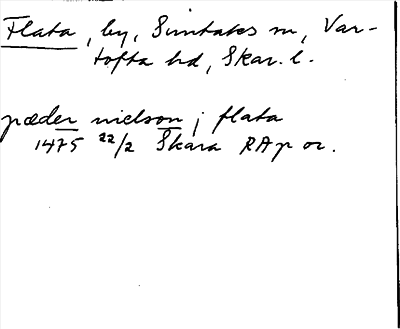 Flata, by, Suntaks sn, Var-
tofta hd, Skar. l.
pæder nielson i flata
1475 22/2 Skara RAp or.